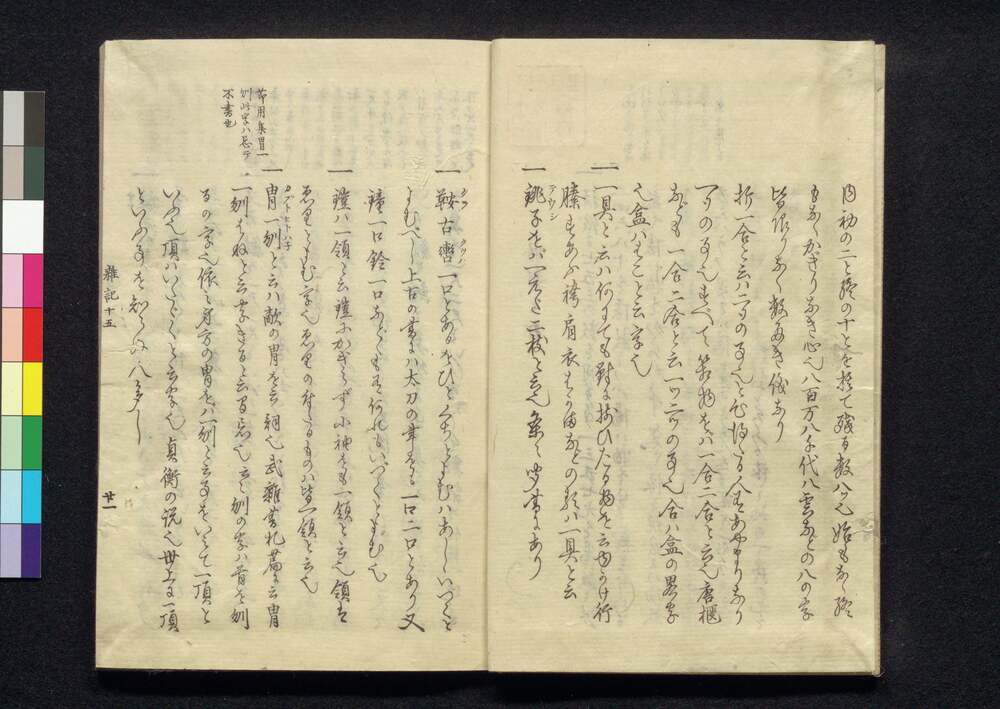 内初の二と終の十とを捨て残る数八也始もなく終
もなくかぎりなき心也八百万八千代八雲などの八の字
皆限りなく数多き儀なり
折一合と云ハ二つの事也と心得たる人あやまりなり
一つの事也すべて箱物をハ一合二合と云也唐櫃
なども一合二合と云一ツ二ツの事也合ハ盒の畧字
也盒ハはこと云字也
一 一具と云ハ何にても対に揃ひたる物を云内かけ行
縢すあふ袴肩衣はかまなどの類ハ一具と云
一 銚子をハ一えだ二枝と云也条々聞書にあり
テウシ
一 鞍古轡一口とあるをひとくちとよむハあし いつくと
よむべし上古の書にハ太刀の事にも一口二口とあり又
鐘一口鈴一口などもあり何れもいつくとよむ也
一 鎧ハ一領と云鎧にかぎらず小袖をも一領と云也領は
ゑりとよむ字也ゑりの付たるものハ皆一領と云也
一 冑一刎と云ハ敵の冑を云詞也武雑書札篇ニ云冑
カブトヒトハネ
一刎はねと云字きると云字
るの字也依之身方の冑をハ一刎と云事をいミて一頂と
いふ也頂ハいたゞくと云字也貞衡の説也世上に一頂
といふ事を知らぬ人多し
節用集冑一
刎此字ハ忌テ
不書也
雑記十五
廿一